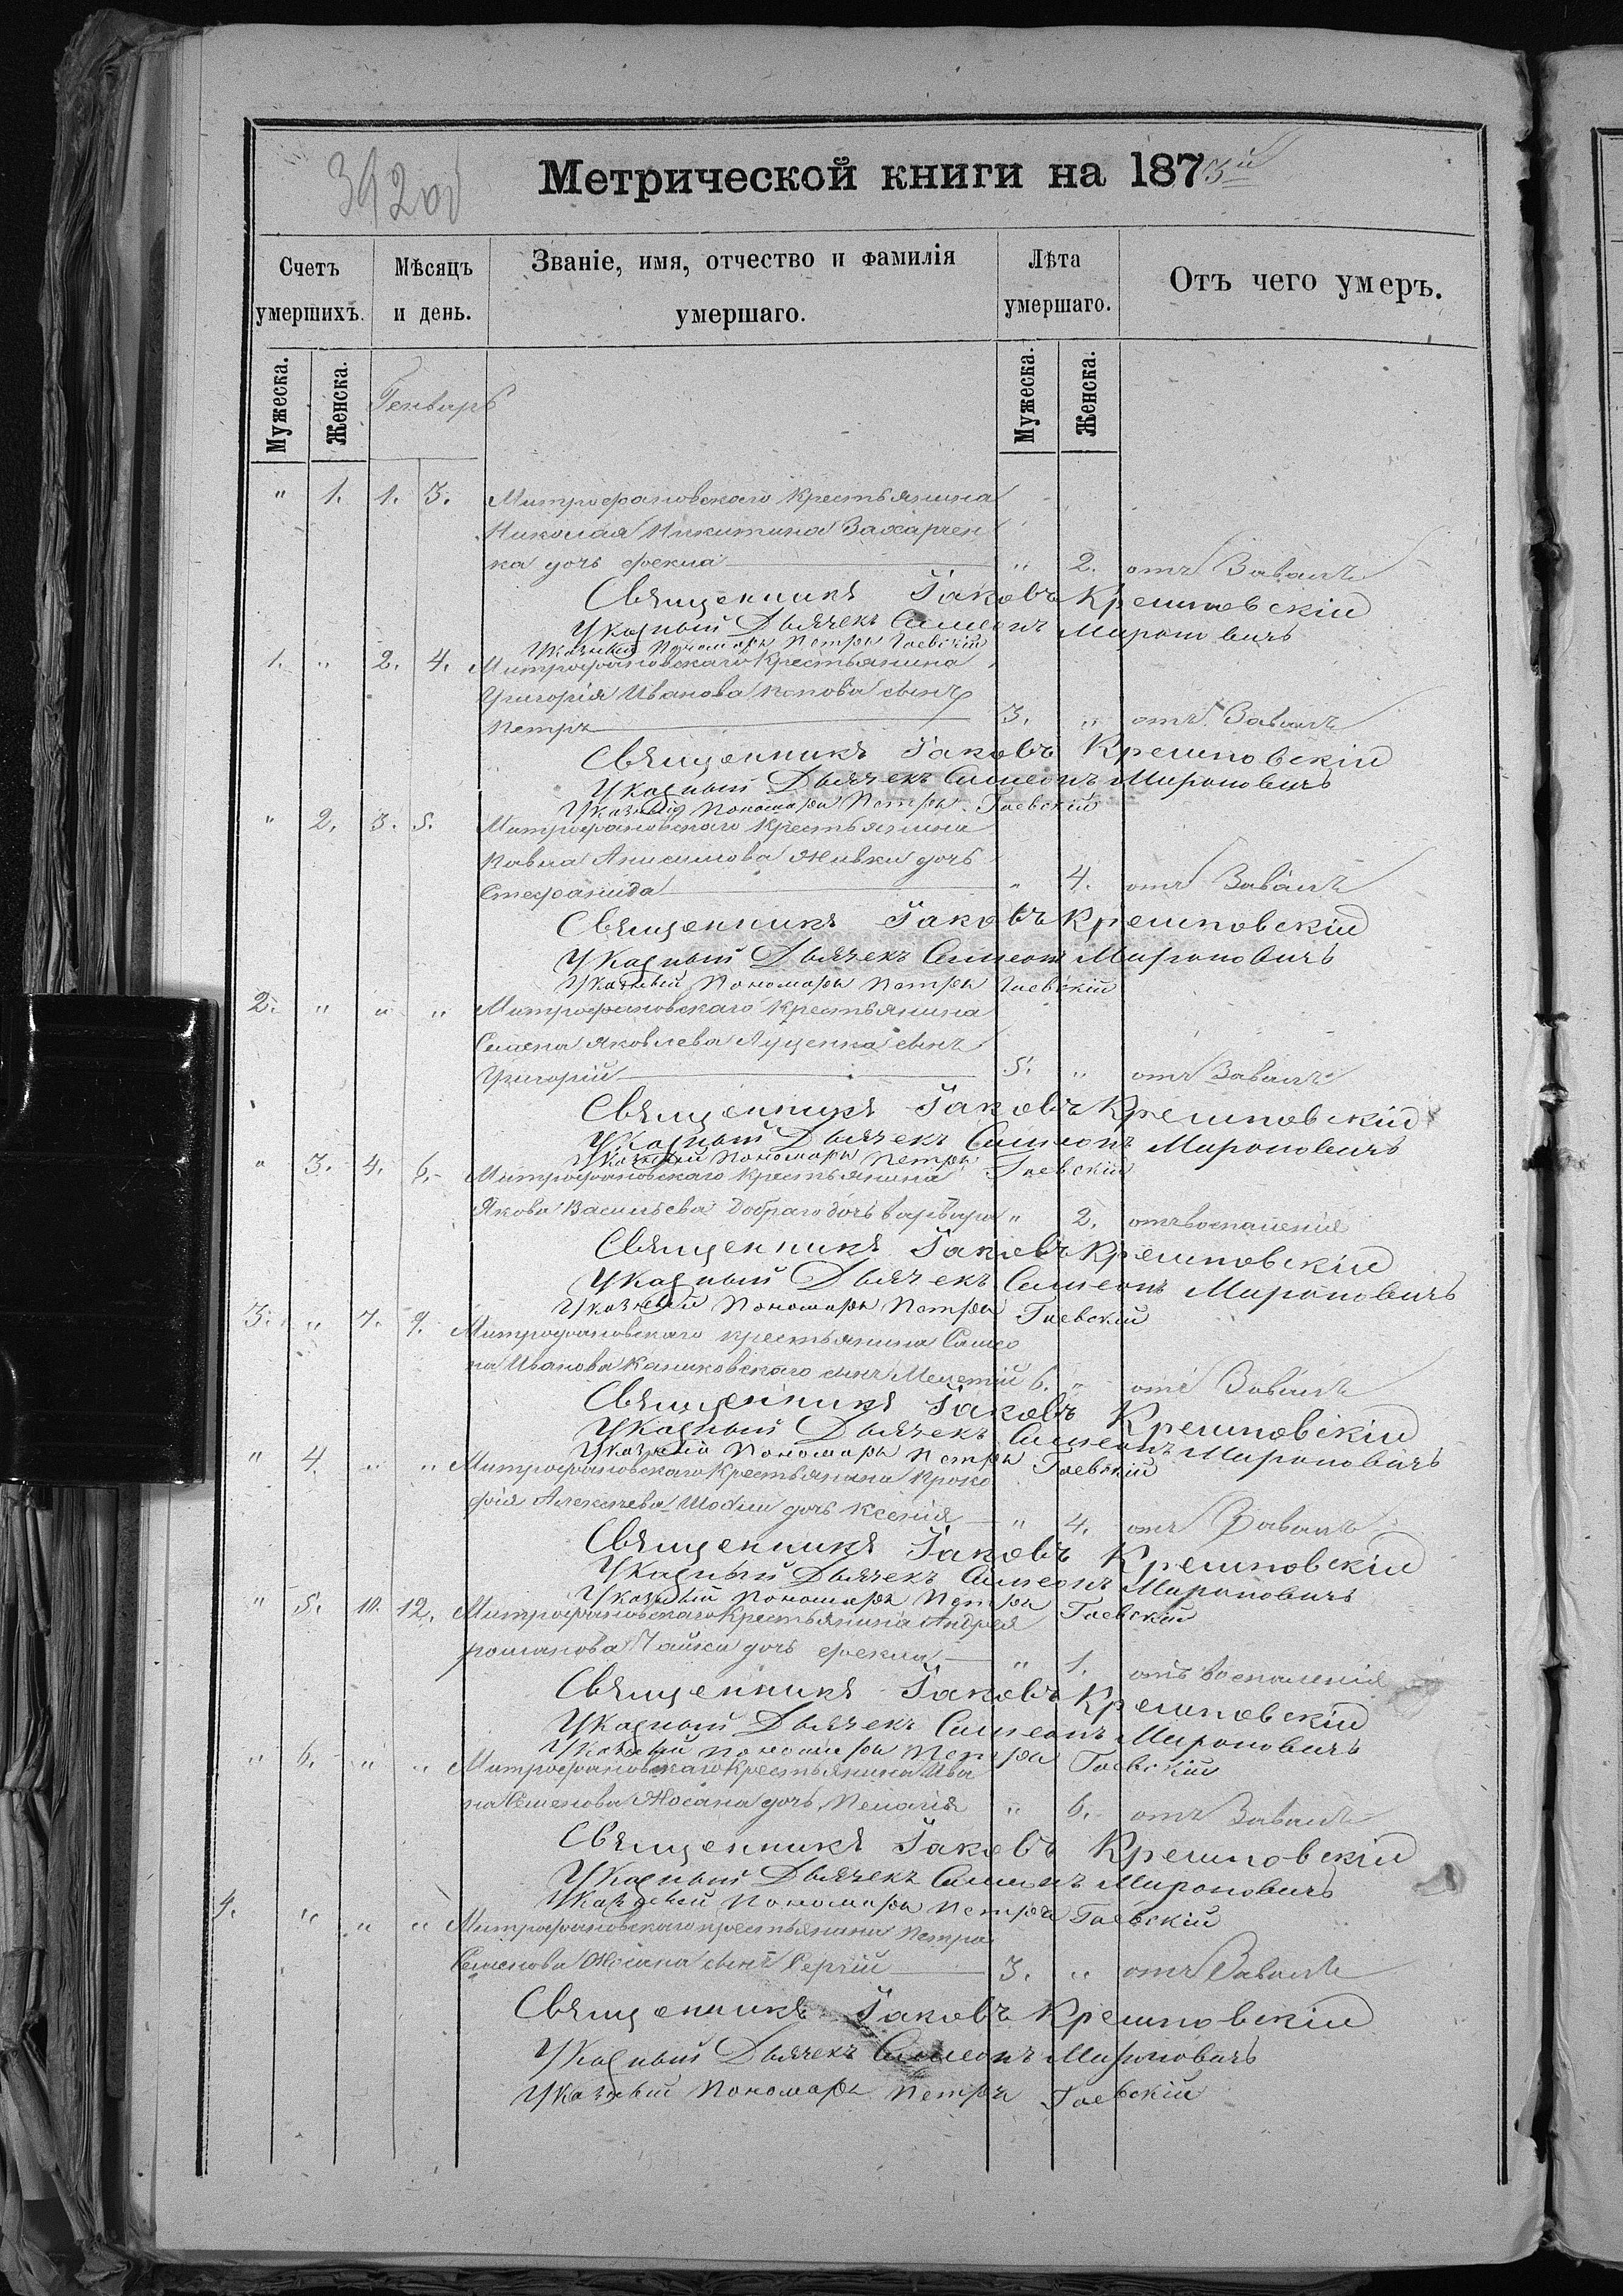 392об
Метрической книги на 1873й
Счетъ умершихъ.
Мѣсяцъ и день.
Званіе, имя, отчество и фамилія умершаго.
Лѣта умершаго.
Отъ чего умеръ.
Мужеска. Женска. Генварь Мужеска. Женска.
" 1. 1. 3. Митрофановскаго крестьянина
Николая Никитина Захарчен
ка дочь Фекла " 2. отъ Завалъ
Священникъ Іаковъ Кремповскій
Указный Дьячекъ Симеонъ Мироновичъ
Указный Пономарь Петръ Гаевскій
1. " 2. 4. Митрофановскаго Крестьянина
Григорія Иванова Попова сынъ
Петръ 3. " отъ Завалъ
Священникъ Іаковъ Кремповскій
Указный Дьячекъ Симеонъ Мироновичъ
Указный Пономарь Петръ Гаевскій
" 2. 3. 5. Митрофановскаго Крестьянина
Павла Анисимова дочь
Стефанида " 4. отъ Завалъ
Священникъ Іаковъ Кремповскій
Указный Дьячекъ Симеонъ Мироновичъ
Указный Пономарь Петръ Гаевскій
2. " " " Митрофановскаго Крестьянина
Семена Яковлева Луценка сынъ
Григорій 5. " отъ Завалъ
Священникъ Іаковъ Кремповскій
Указный Дьячекъ Симеонъ Мироновичъ
Указный Пономарь Петръ Гаевскій
" 3. 4. 6. Митрофановскаго Крестьянина
Якова Васильева Добраго дочь Варвара " 2. отъ воспаленія
Священникъ Іаковъ Кремповскій
Указный Дьячекъ Симеонъ Мироновичъ
Указный Пономарь Петръ Гаевскій
3. " 7. 9. Митрофановскаго крестьянина Симео
на Иванова сынъ Мелетій 6. " отъ Завалъ
Священникъ Іаковъ Кремповскій
Указный Дьячекъ Симеонъ Мироновичъ
Указный Пономарь Петръ Гаевскій
" 4. " " Митрофановскаго Крестьянина Проко
фія Алексѣева дочь Ксенія " 4. отъ Завалъ
Священникъ Іаковъ Кремповскій
Указный Дьячекъ Симеонъ Мироновичъ
Указный Пономарь Петръ Гаевскій
" 5. 10. 12. Митрофановскаго Крестьянина Андрея
Романова Чайки дочь Фекла " 1. отъ воспаленія
Священникъ Іаковъ Кремповскій
Указный Дьячекъ Симеонъ Мироновичъ
Указный Пономарь Петръ Гаевскій
" 6. " " Митрофановскаго Крестьянина Ива
на Семенова Носана дочь Пелагія " 6. отъ Завалъ
Священникъ Іаковъ Кремповскій
Указный Дьячекъ Симеонъ Мироновичъ
Указный Пономарь Петръ Гаевскій
4. " " " Митрофановскаго крестьянина Петра
Семенова Носана сынъ Сергій 3. " отъ Завалъ
Священникъ Іаковъ Кремповскій
Указный Дьячекъ Симеонъ Мироновичъ
Указный Пономарь Петръ Гаевскій